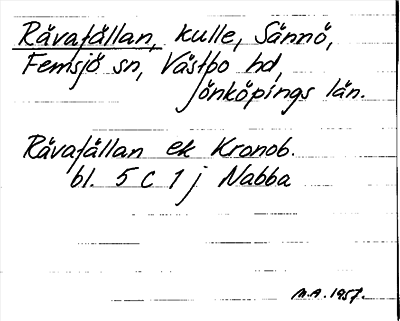 Råvafållan, kulle, Sännö,
Femsjö sn, Västbo hd,
Jönköpings län.
Råvafållan ek Kronob.
bl. 5 C 1 j Nabba
M.A. 1957.